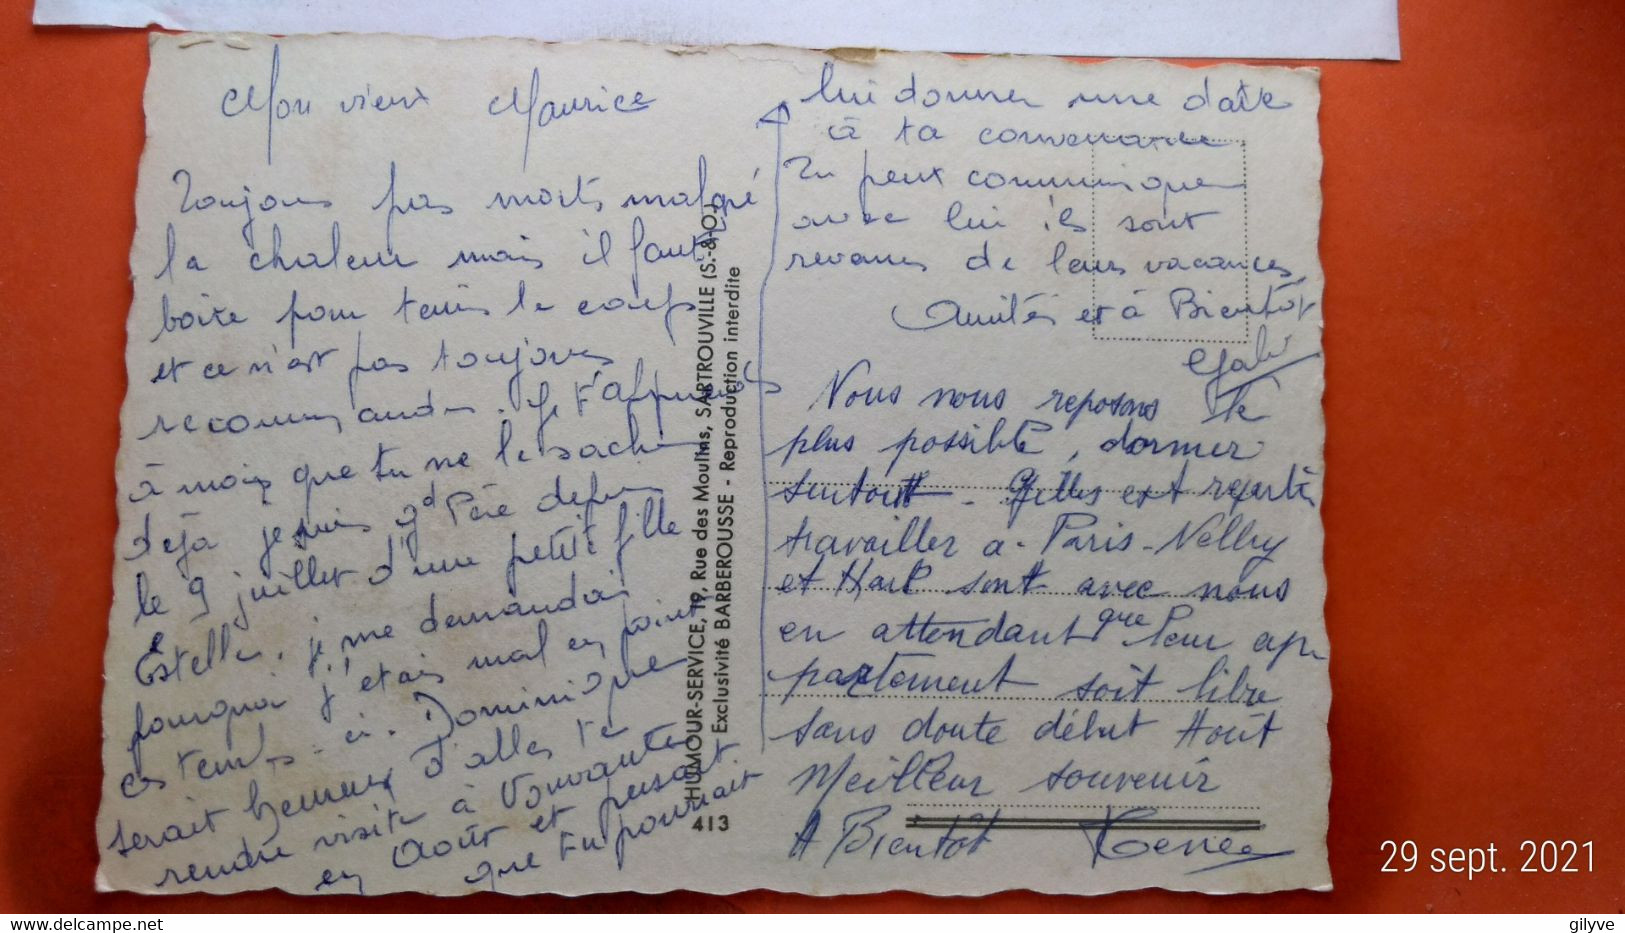 Mon vieux Maurice
Toujours pas morts malgré
la chaleur mais il faut
boire pour tenir le coup
et ce n'est pas toujours
recommandé. Je t'apprends
à mois que tu ne le sache
déjà je suis gd Père depuis
le 9 juillet d'une petite fille
Estelle. je me demandais
pourquoi j'étais mal en point
ces temps-ci. Dominique
serait heureux d'aller te
rendre visite à
en Août et pensait
que tu pourrait
lui donner une date
à ta convenance
Tu peux communiquer
avec lui ils sont
revenus de leurs vacances
Amitiés et à Bientôt
Gaby
Nous nous reposons le
plus possible, dormer
surtout - Gilles est reparti
travailler a - Paris - Nelly
et sont avec nous
en attendant que leur ap-
partement soit libre
sans doute début Août
Meilleur souvenir
A Bientôt Renée
HUMOUR-SERVICE, 19, Rue des Moulins, SARTROUVILLE (S.-&-O.)
Exclusivité BARBEROUSSE - Reproduction interdite
413
29 sept. 2021
www.delcampe.net
gilyve